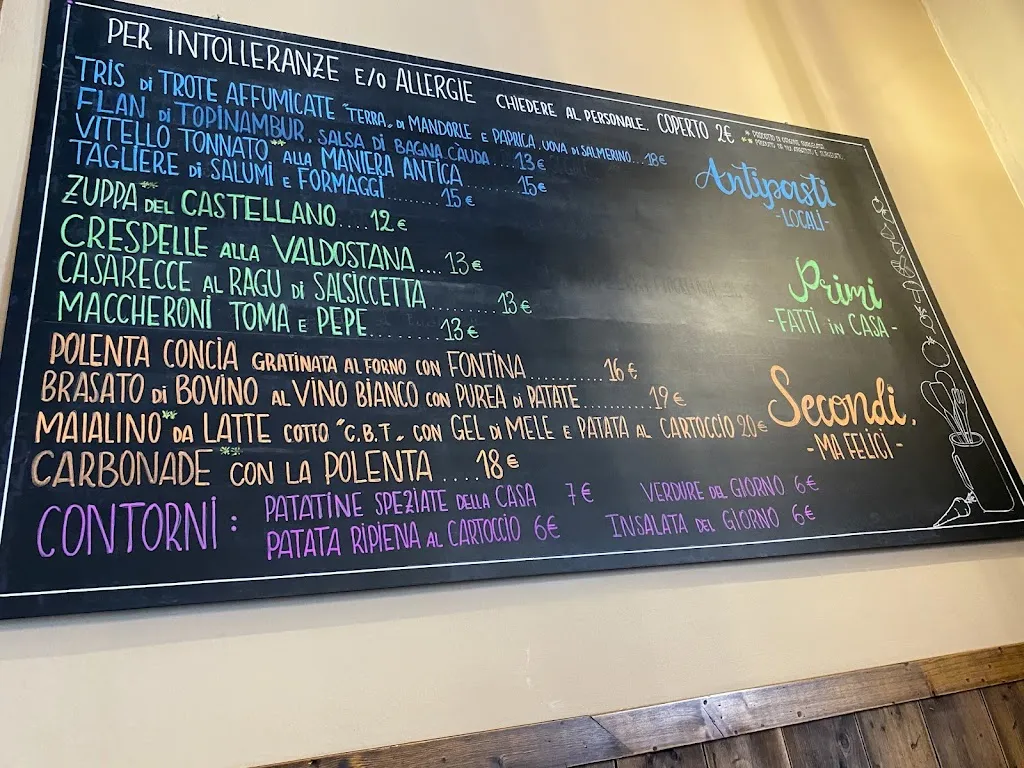 PER INTOLLERANZE E/O ALLERGIE CHIEDERE AL PERSONALE. COPERTO 2€
TRIS DI TROTE AFFUMICATE "TERRA" DI MANDORLE E PAPRICA, UOVA DI SALMERINO...18€
FLAN DI TOPINAMBUR, SALSA DI BAGNA CAUDA....13€
VITELLO TONNATO** ALLA MANIERA ANTICA.......15€
TAGLIERE DI SALUMI E FORMAGGI........15€
Antipasti
-LOCALI-
ZUPPA** DEL CASTELLANO....12€
CRESPELLE ALLA VALDOSTANA....13€
CASARECCE AL RAGU DI SALSICCETTA.........13€
MACCHERONI TOMA E PEPE..........13€
Primi
-FATTI IN CASA-
POLENTA CONCIA GRATINATA AL FORNO CON FONTINA..........16€
BRASATO DI BOVINO AL VINO BIANCO CON PUREA DI PATATE..........19€
MAIALINO** DA LATTE COTTO "C.B.T" CON GEL DI MELE E PATATA AL CARTOCCIO 20€
CARBONADE** CON LA POLENTA ....18€
Secondi,
-MA FELICI-
CONTORNI:
PATATINE SPEZIATE DELLA CASA 7€
VERDURE DEL GIORNO 6€
PATATA RIPIENA AL CARTOCCIO 6€
INSALATA DEL GIORNO 6€